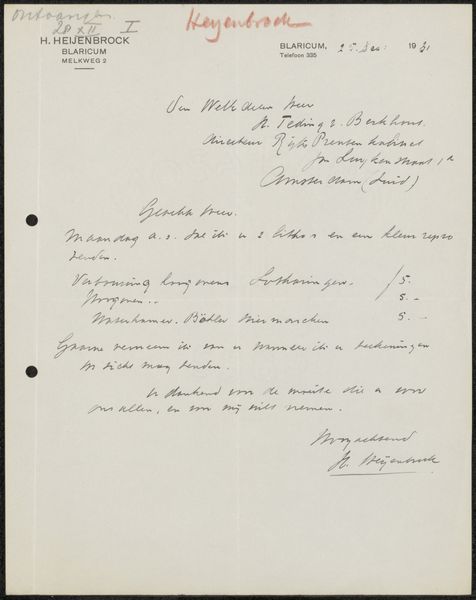 ontvangen
28 XII I
Heyenbrock
H. HEIJENBROCK
BLARICUM
MELKWEG 2
BLARICUM, 25 Dec: 1931
Telefoon 335
Den Weled. Heer
H. Teding v. Berkhout.
directeur Rijks Prentenkabinet
Jan Luykenstraat 1a
Amsterdam (Zuid)
Geachte Heer.
Maandag a.s. zal ik u 2 litho's en een klein repro
zenden.
hoogovens Lotharingen. / 5.
Hoogoven.. 5. –
Waterhamer. Böhler Stiermarken 5. –
Gaarne verneem ik van u wanneer ik u teekeningen
in zicht mag zenden.
U dankend voor de moeite die u voor
ons allen, en voor mij wilt nemen.
Hoogachtend
H. Heijenbrock